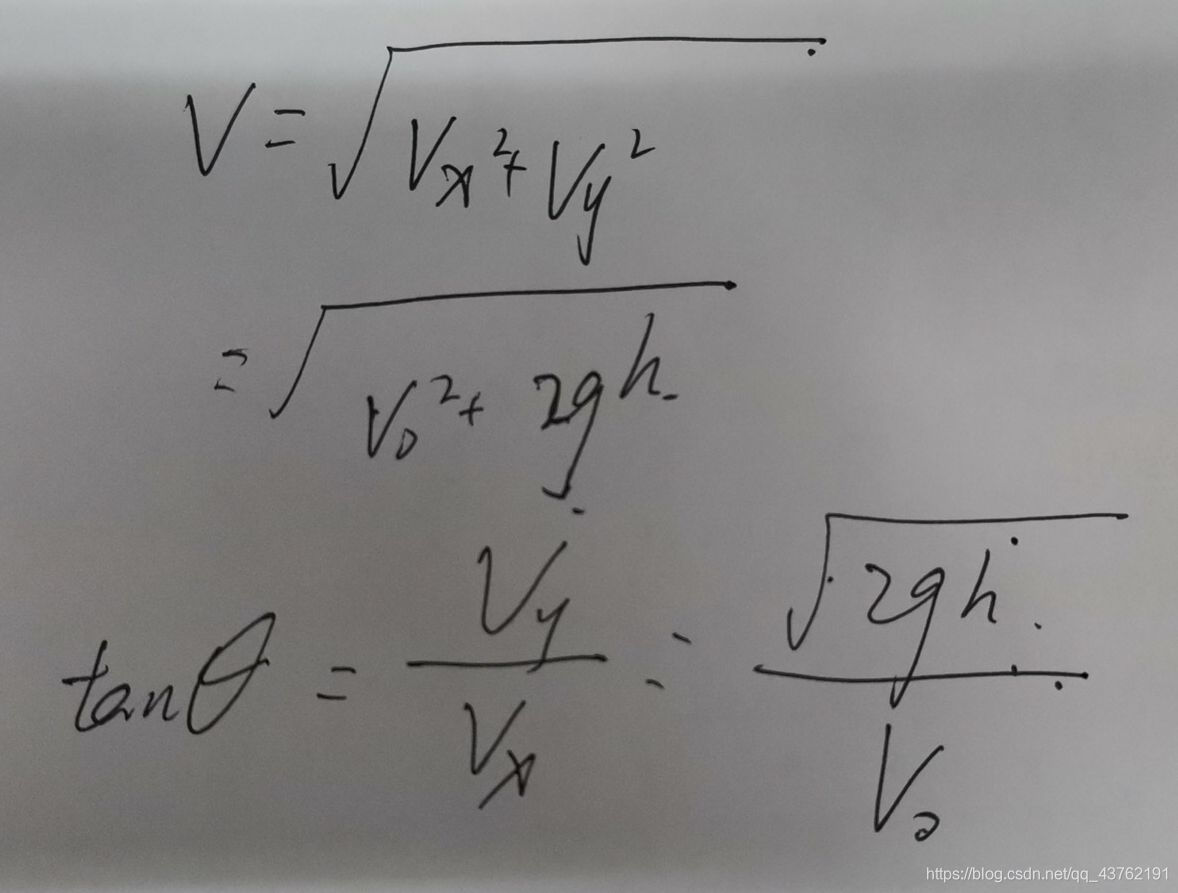 V = √(Vx² + Vy²)
= √(V₀² + 2gh)
tanθ = Vy/Vx = √(2gh)/V₀
https://blog.csdn.net/qq_43762191